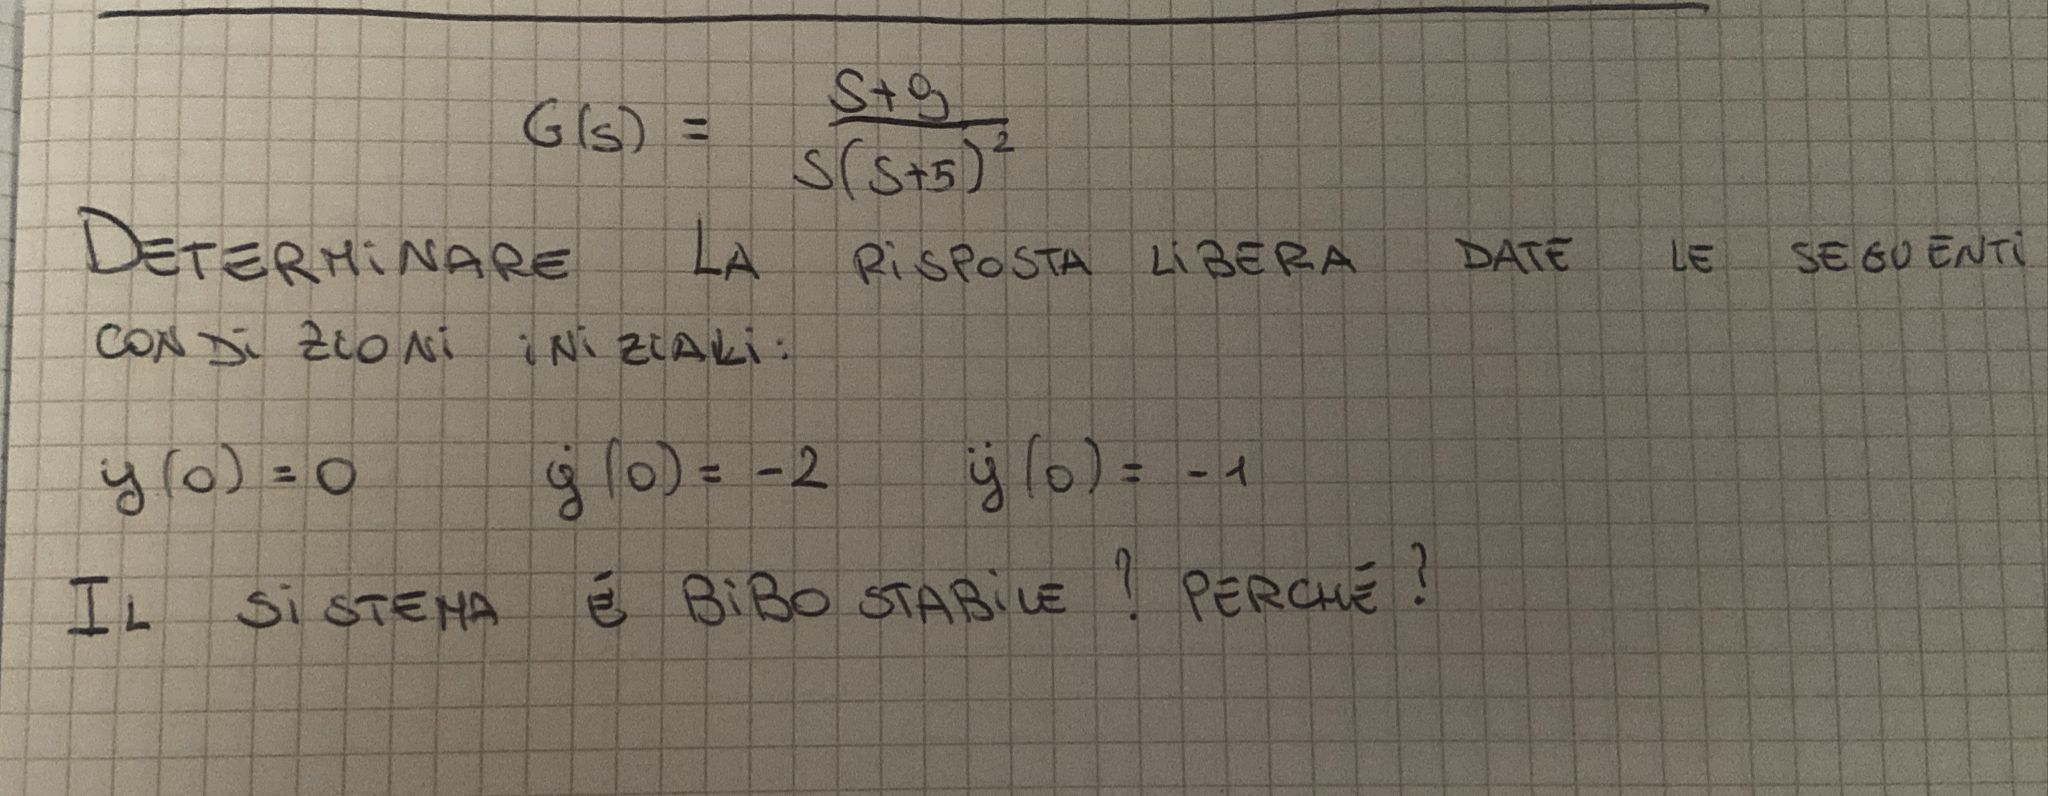 G(s) = s+9 / s(s+5)²
DETERMINARE LA RISPOSTA LIBERA DATE LE SEGUENTI
CONDIZIONI INIZIALI:
y(0)=0 ẏ(0)=-2 ÿ(0)=-1
IL SISTEMA É BIBO STABILE? PERCHÉ?